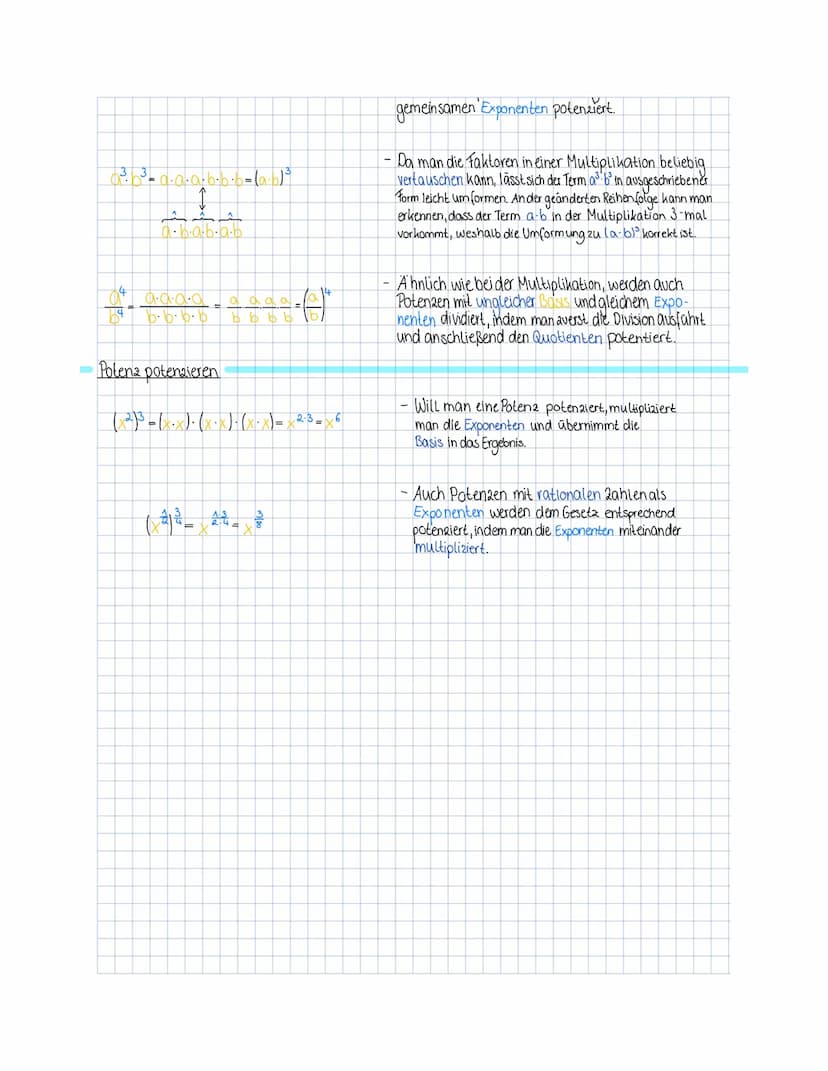 gemeinsamen Exponenten potenziert.
a³·b³ = a·a·a·b·b·b = (a·b)³
a·b·a·b·a·b
- Da man die Faktoren in einer Multiplikation beliebig
vertauschen kann, lässt sich der Term a³·b³ in ausgeschriebener
Form leicht umformen. An der geänderten Reihenfolge kann man
erkennen, dass der Term a·b in der Multiplikation 3-mal
vorkommt, weshalb die Umformung zu (a·b)³ korrekt ist.
a⁴/b⁴ = a·a·a·a/b·b·b·b = a/b · a/b · a/b · a/b = (a/b)⁴
- Ähnlich wie bei der Multiplikation, werden auch
Potenzen mit ungleicher Basis und gleichem Expo-
nenten dividiert, indem man zuerst die Division ausführt
und anschließend den Quotienten potentiert.
Potenz potenzieren
(x²)³ = (x·x)·(x·x)·(x·x) = x²·³ = x⁶
- Will man eine Potenz potenziert, multipliziert
man die Exponenten und übernimmt die
Basis in das Ergebnis.
(x^1/2)^3/4 = x^1·3/2·4 = x^3/8
- Auch Potenzen mit rationalen Zahlen als
Exponenten werden dem Gesetz entsprechend
potenziert, indem man die Exponenten miteinander
multipliziert.